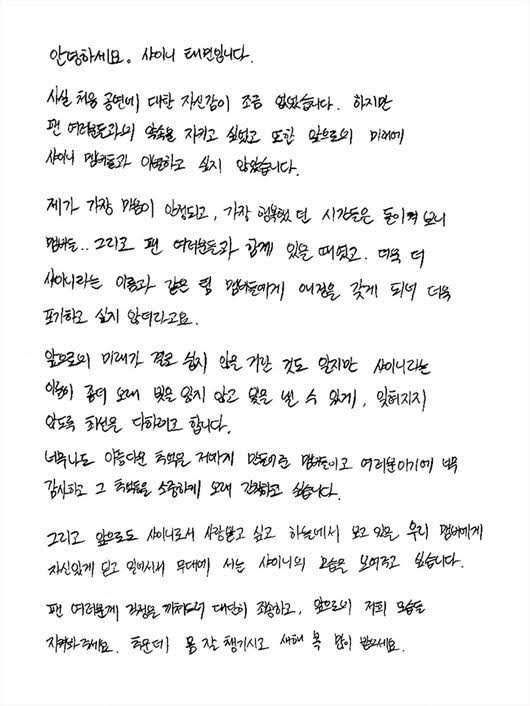 안녕하세요. 샤이니 태민입니다.
사실 처음 공연에 대한 자신감이 조금 없었습니다. 하지만
팬 여러분들과의 약속을 지키고 싶었고 또한 앞으로의 미래에
샤이니 멤버들과 이별하고 싶지 않았습니다.
제가 가장 마음이 안정되고, 가장 행복했던 시간들은 돌이켜 보니
멤버들.. 그리고 팬 여러분들과 함께 있을 때였고. 더욱 더
샤이니라는 이름과 같은 팀 멤버들에게 애정을 갖게 되니 더욱
포기하고 싶지 않더라고요.
앞으로의 미래가 결코 쉽지 않을 거란 것도 알지만 샤이니라는
이름이 좀더 오래 빛을 잃지 않고 빛을 낼 수 있게, 잊혀지지
않도록 최선을 다하려고 합니다.
너무나도 아름다운 추억을 저에게 만들어준 멤버들이고 여러분이기에 너무
감사하고 그 추억들을 소중하게 오래 간직하고 싶습니다.
그리고 앞으로도 샤이니로서 사랑받고 싶고 하늘에서 보고 있을 우리 멤버에게
자신있게 믿고 일어서서 무대에 서는 샤이니의 모습을 보여주고 싶습니다.
팬 여러분께 걱정을 끼쳐드려 대단히 죄송하고, 앞으로의 저희 모습을
지켜봐주세요. 추운데 몸 잘 챙기시고 새해 복 많이 받으세요.